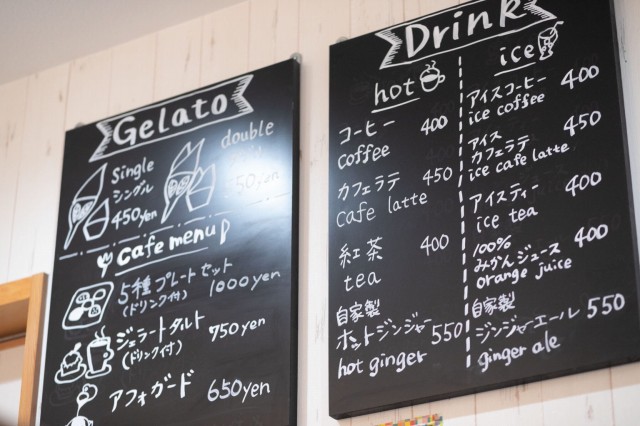 Gelato
single
シングル
450yen
double
50yen
Cafe menu
5種プレートセット
(ドリンク付) 1000yen
ジェラートタルト
(ドリンク付) 750yen
アフォガード 650yen
Drink
hot
コーヒー 400
coffee
カフェラテ 450
cafe latte
紅茶 400
tea
自家製
ホットジンジャー 550
hot ginger
ice
アイスコーヒー 400
ice coffee
アイス
カフェラテ 450
ice cafe latte
アイスティー 400
ice tea
100%
みかんジュース 400
orange juice
自家製
ジンジャーエール 550
ginger ale